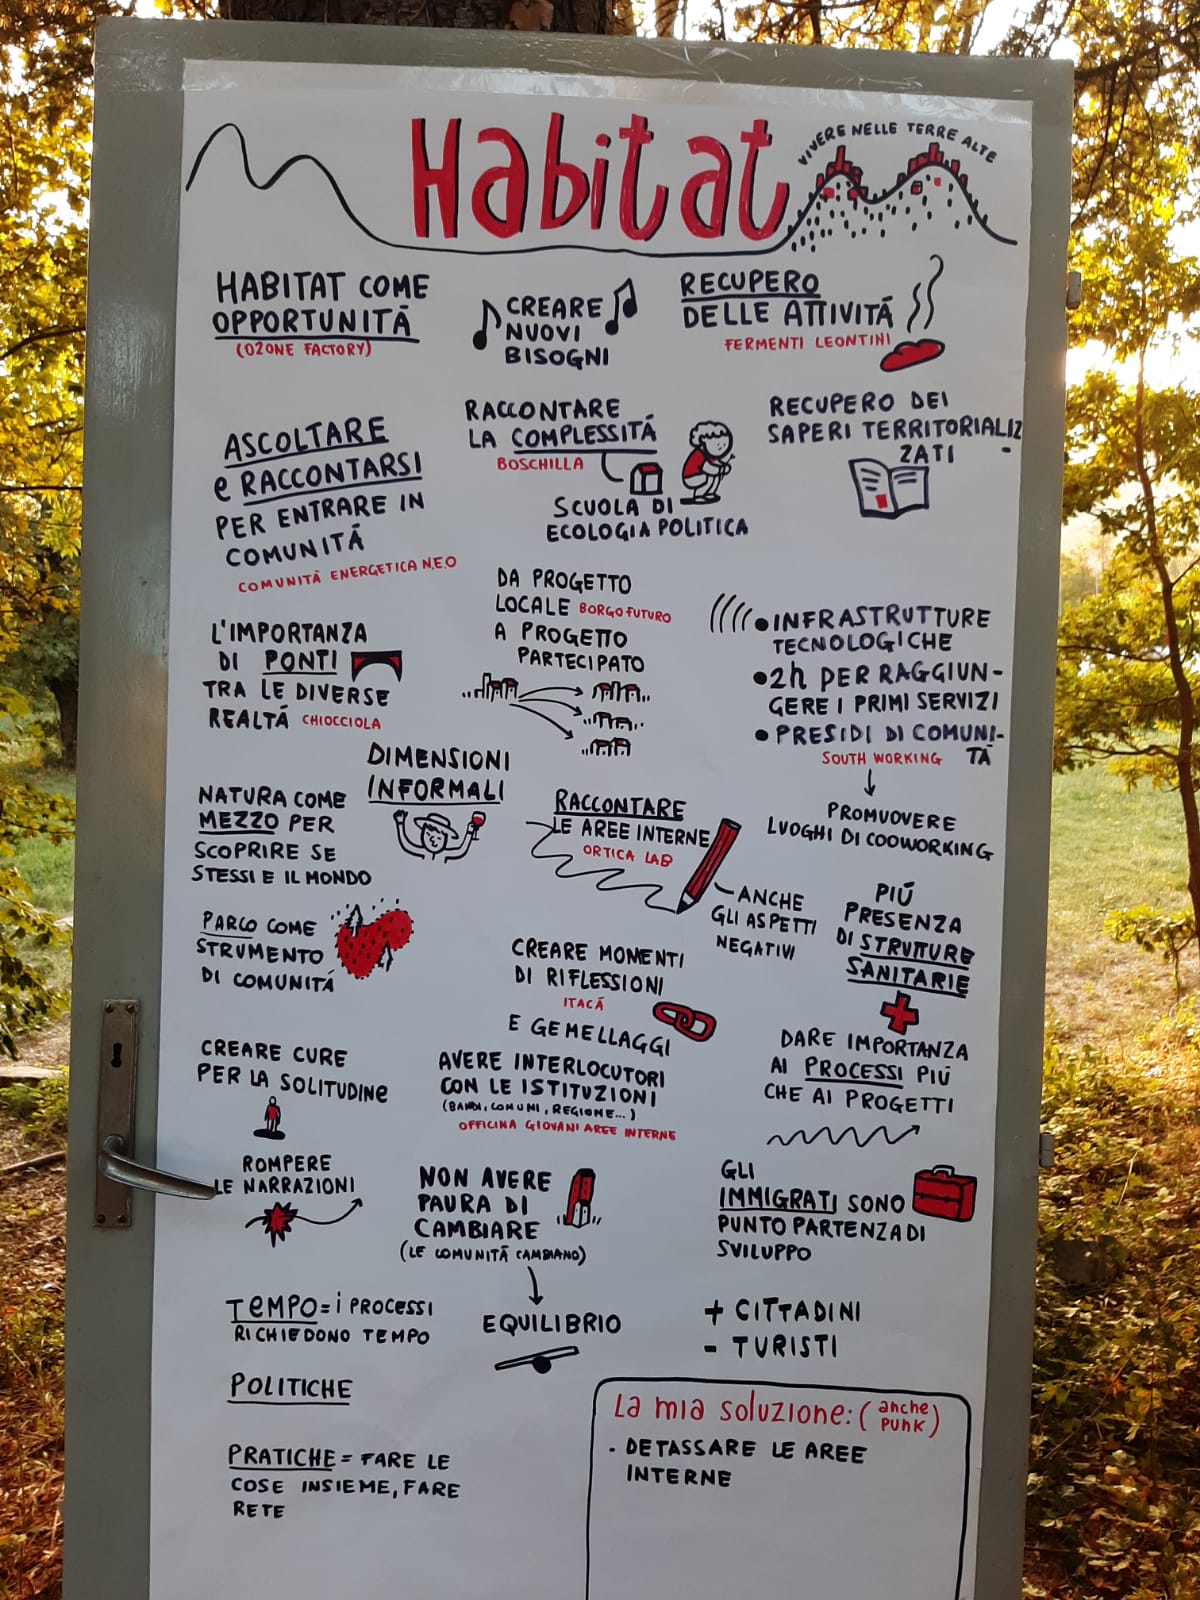 Habitat
VIVERE NELLE TERRE ALTE
HABITAT COME
OPPORTUNITÁ
(OZONE FACTORY)
CREARE
NUOVI
BISOGNI
RECUPERO
DELLE ATTIVITÁ
FERMENTI LEONTINI
ASCOLTARE
e RACCONTARSI
PER ENTRARE IN
COMUNITÁ
COMUNITÀ ENERGETICA N.E.O
RACCONTARE
LA COMPLESSITÁ
BOSCHILLA
SCUOLA DI
ECOLOGIA POLITICA
RECUPERO DEI
SAPERI TERRITORIALIZ
ZATI -
L'IMPORTANZA
DI PONTI
TRA LE DIVERSE
REALTÁ CHIOCCIOLA
DA PROGETTO
LOCALE BORGOFUTURO
A PROGETTO
PARTECIPATO
• INFRASTRUTTURE
TECNOLOGICHE
• 2h PER RAGGIUN-
GERE I PRIMI SERVIZI
• PRESIDI DI COMUNI-
TÀ
SOUTH WORKING
PROMUOVERE
LUOGHI DI COOWORKING
DIMENSIONI
INFORMALI
NATURA COME
MEZZO PER
SCOPRIRE SE
STESSI E IL MONDO
RACCONTARE
LE AREE INTERNE
ORTICA LAB
ANCHE
GLI ASPETTI
NEGATIVI
PIÚ
PRESENZA
DI STRUTTURE
SANITARIE
PARCO COME
STRUMENTO
DI COMUNITÁ
CREARE MOMENTI
DI RIFLESSIONI
ITACÁ
E GEMELLAGGI
CREARE CURE
PER LA SOLITUDINE
AVERE INTERLOCUTORI
CON LE ISTITUZIONI
(BANDI, COMUNI, REGIONE...)
OFFICINA GIOVANI AREE INTERNE
DARE IMPORTANZA
AI PROCESSI PIÚ
CHE AI PROGETTI
ROMPERE
LE NARRAZIONI
NON AVERE
PAURA DI
CAMBIARE
(LE COMUNITÁ CAMBIANO)
EQUILIBRIO
GLI
IMMIGRATI SONO
PUNTO PARTENZA DI
SVILUPPO
+ CITTADINI
- TURISTI
TEMPO = i PROCESSI
RICHIEDONO TEMPO
POLITICHE
PRATICHE = FARE LE
COSE INSIEME, FARE
RETE
La mia soluzione: (anche
PUNK)
· DETASSARE LE AREE
INTERNE